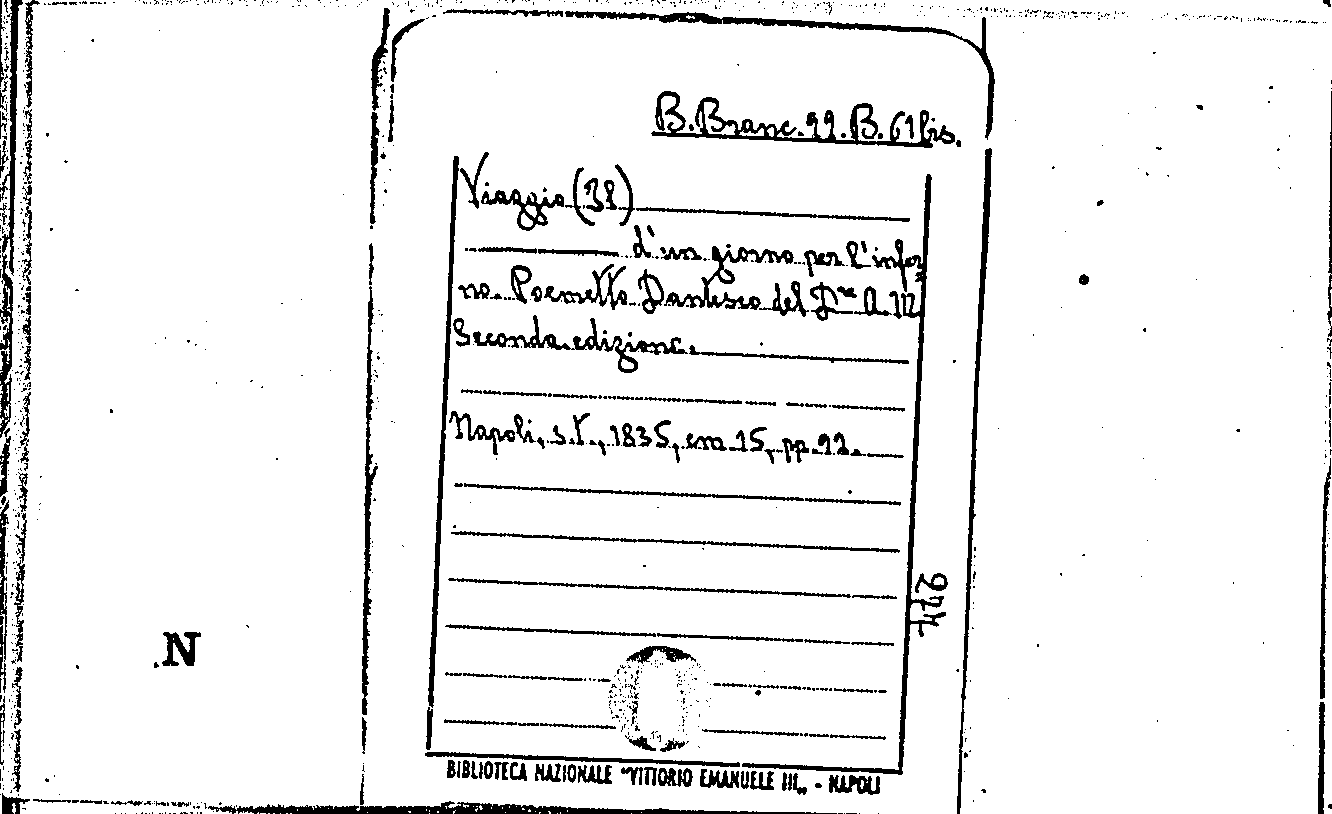 B. Branc. 99. B. 61 bis.
Viaggio (38)
d'un giorno per l'infer
no. Poemetto Dantesco del Dre A. M.
Seconda edizione.
Napoli, s.T., 1835, cm 15, pp. 92.
N
BIBLIOTECA NAZIONALE "VITTORIO EMANUELE III„ - NAPOLI